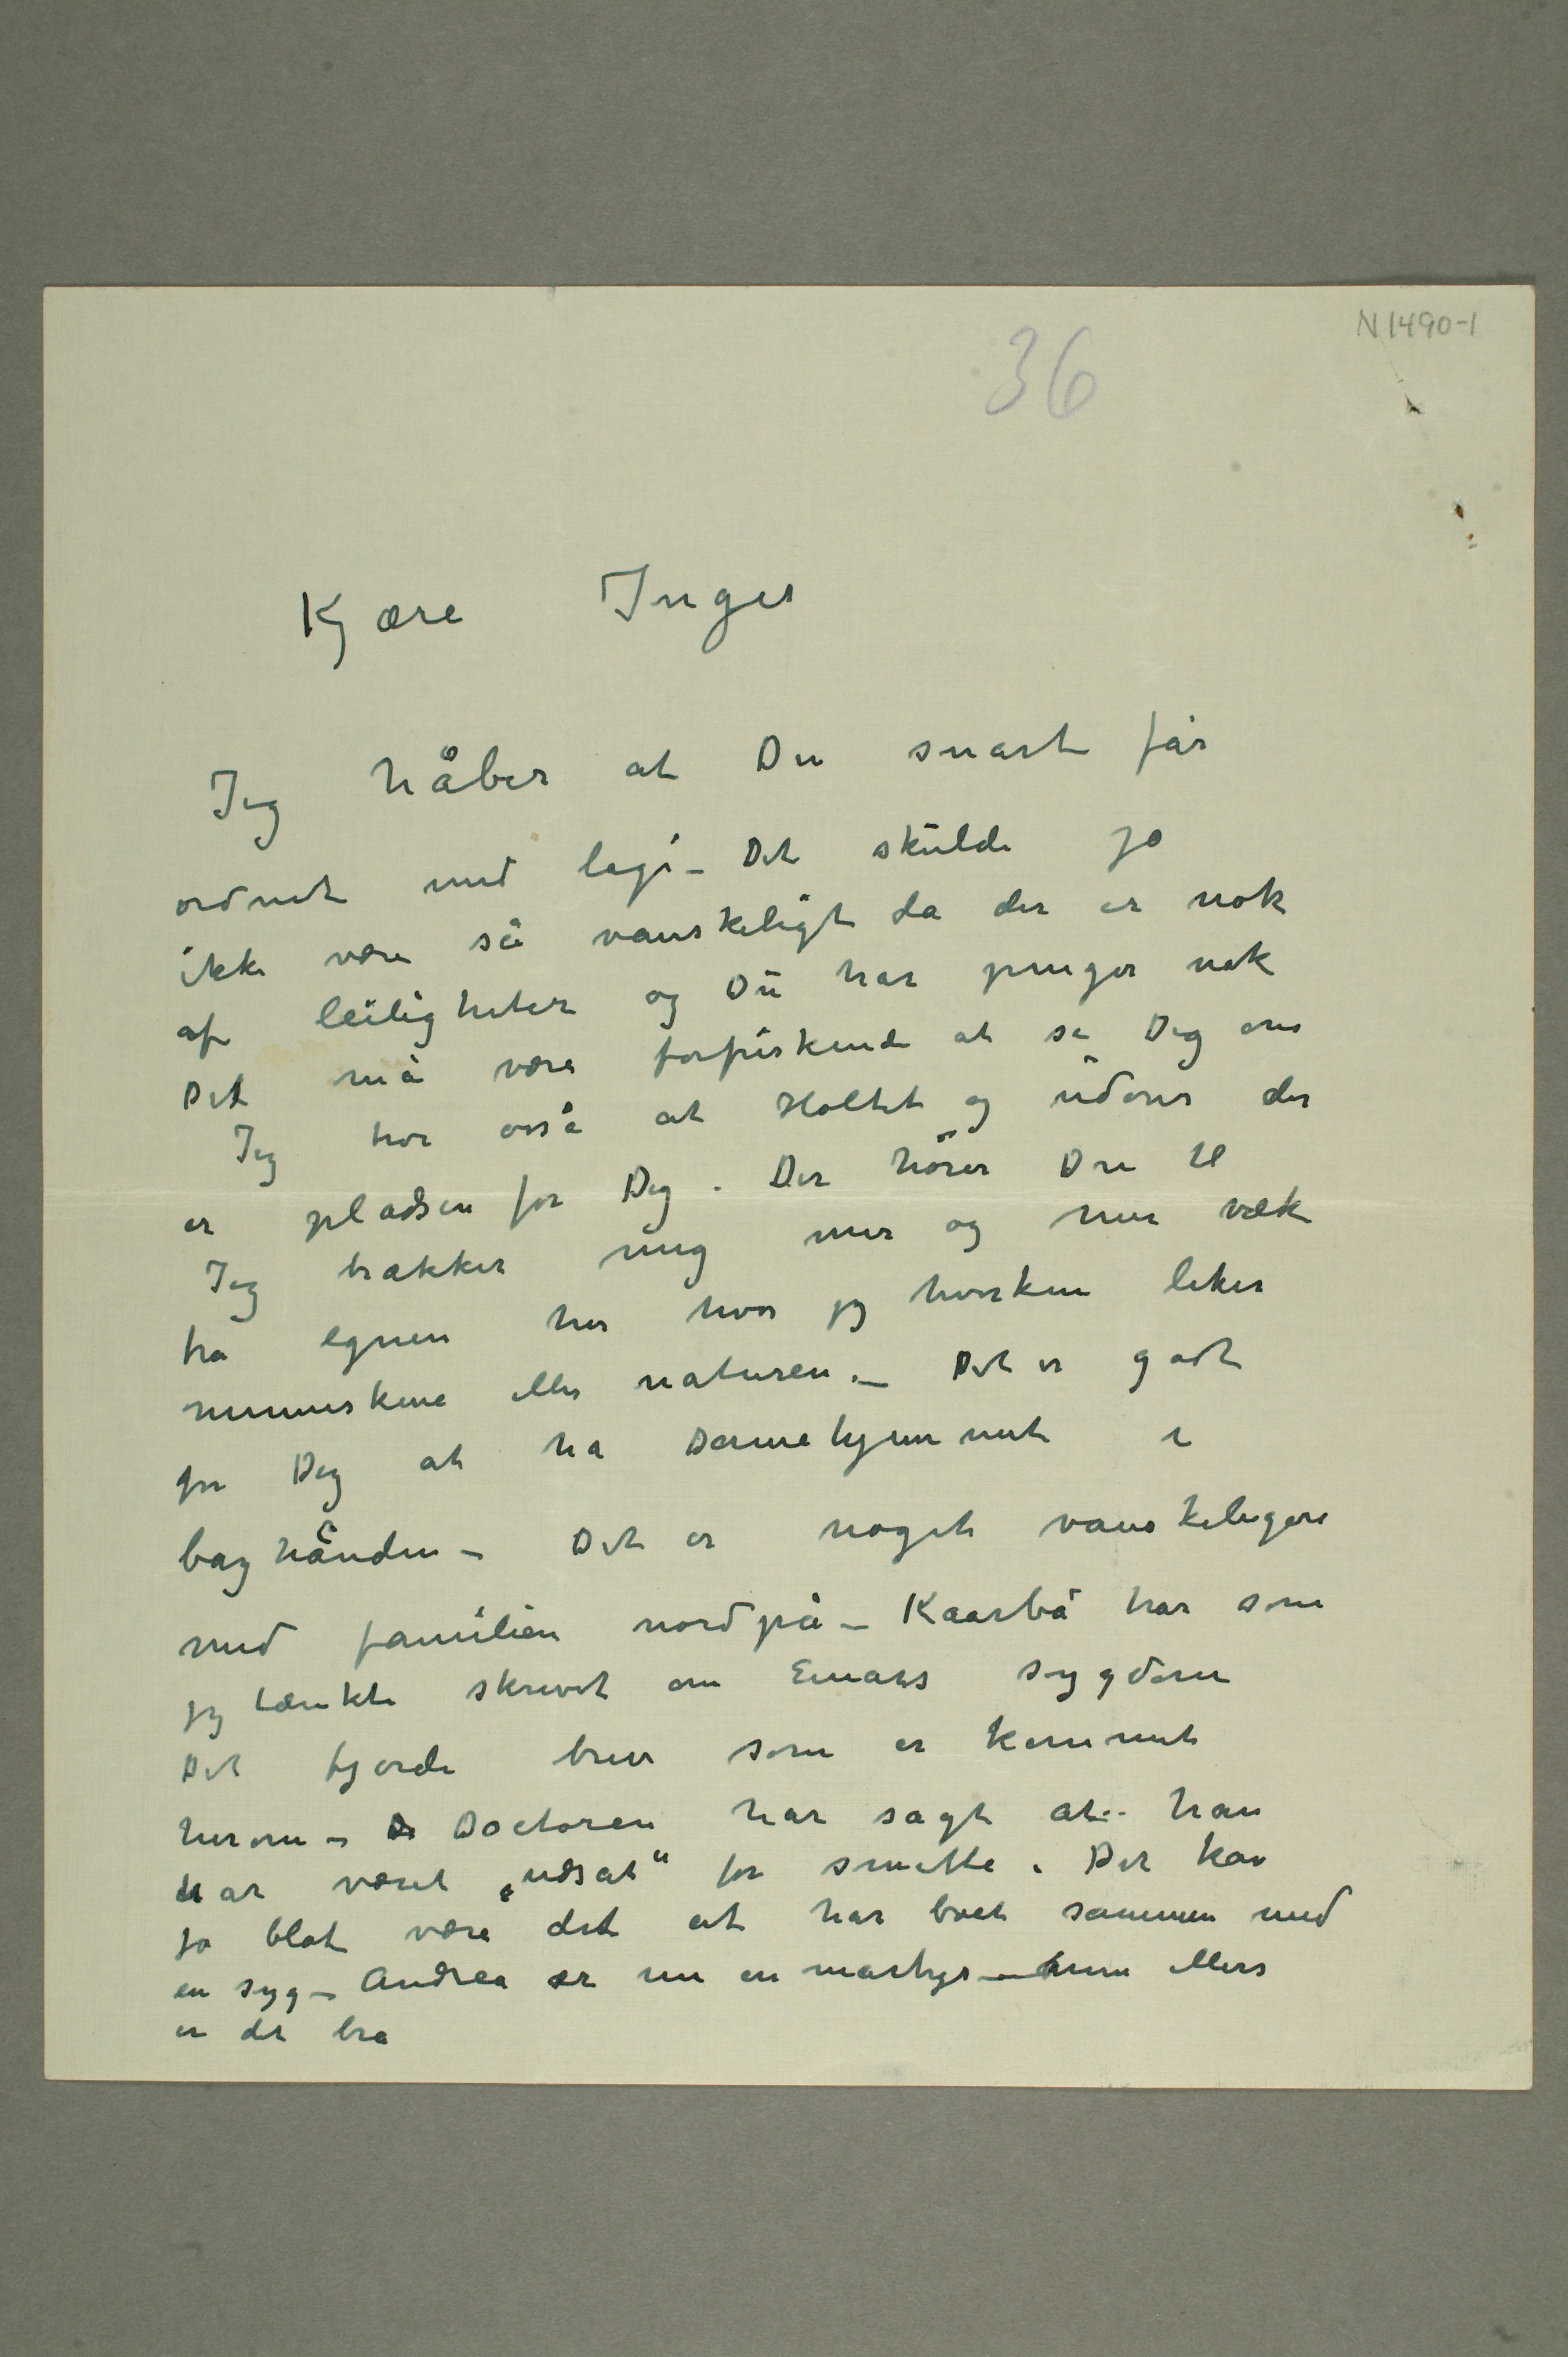 N 1490-1
36
Kjære Inger
Jeg håber at Du snart får
ordnet med logi – Det skulde jo
ikke være så vanskeligt da der er nok
af leiligheter og Du har penger nok
Det må være forfriskende at se Dig om
Jeg tror osså at Holtet og udover der
er pladsen for Dig. Der hører Du til
Jeg trækker mig mer og mer væk
fra egnen her hvor jeg hverken liker
menneskene eller naturen. – Det er godt
for Dig at ha Damehjemmet i
baghånden – Det er noget vanskeligere
med familien nordpå – Kaarbø har som
jeg tænkte skrevet om Einars sygdom
Det fjorde brev som er kommet
herom – D Doctoren har sagt at han
har været „udsat“ for smitte. Det kan
jo blot være det at har boet sammen med
en syg – Andrea er nu en martyr – men ellers
er det bra